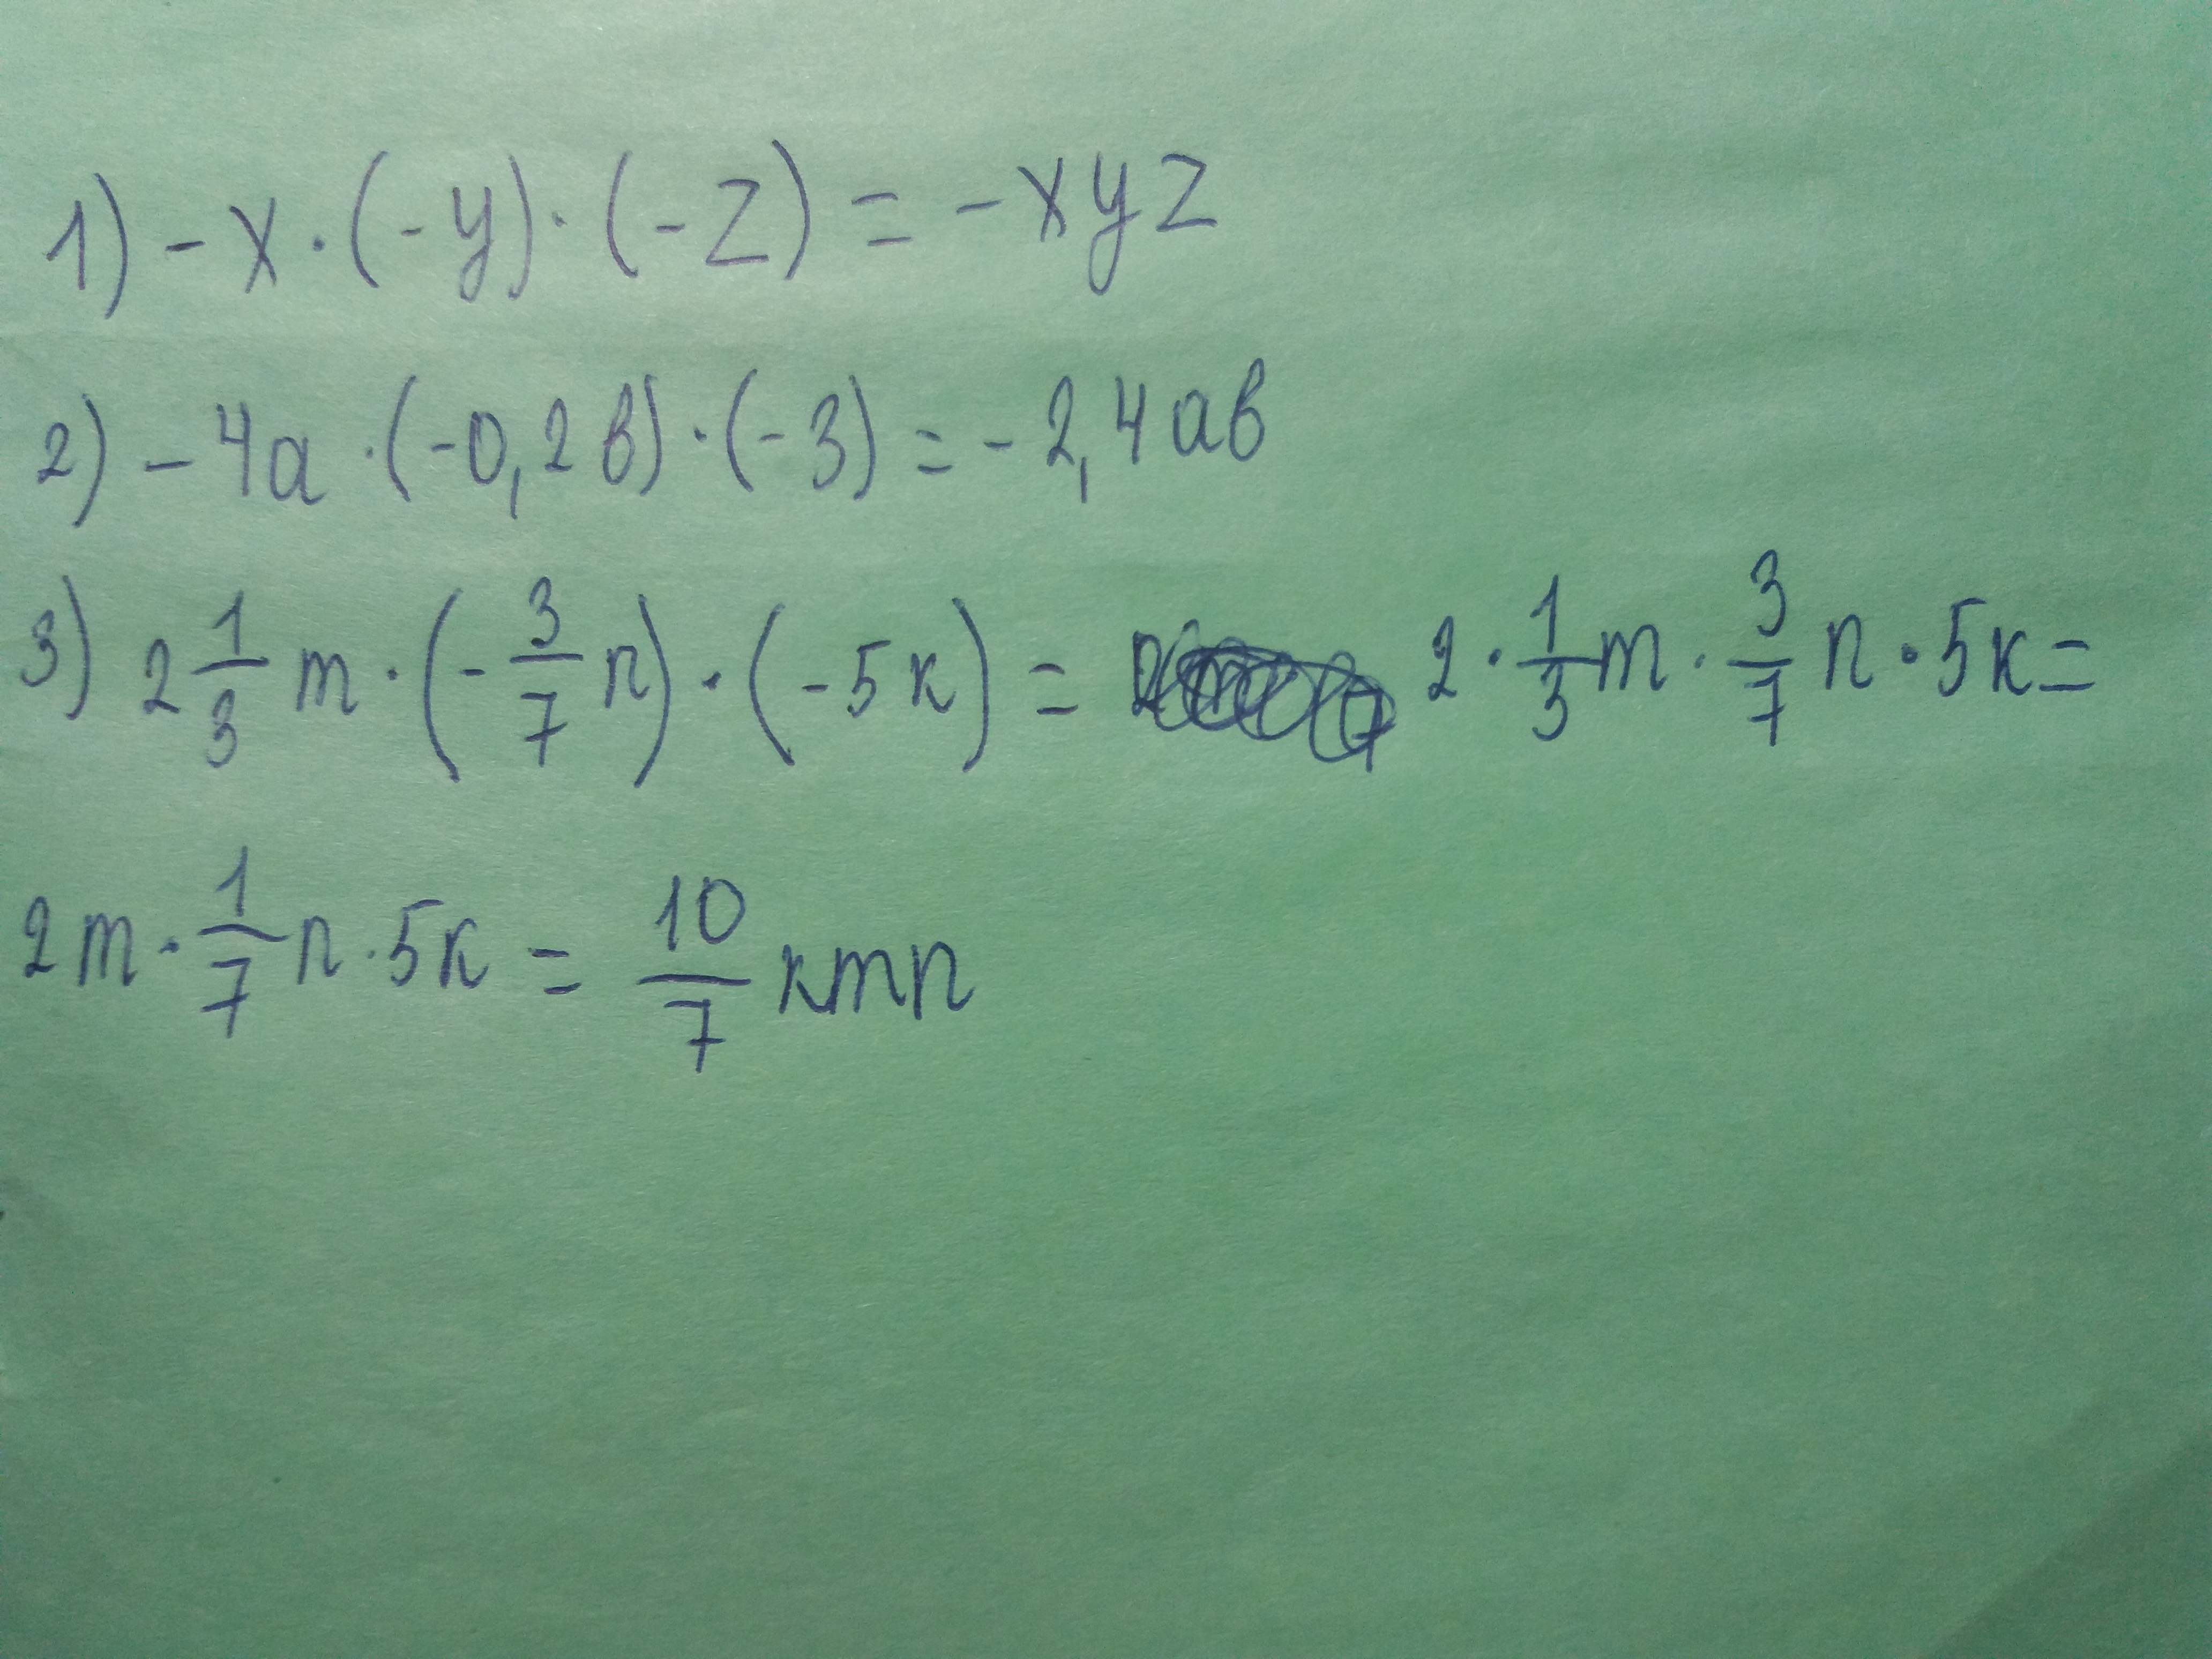 1) -x · (-y) · (-z) = -xyz
2) -4a · (-0,2в) · (-3) = -2,4ав
3) 2 1/3 m · (-3/7 n) · (-5к) = 2 · 1/3 m · 3/7 n · 5к =
2m · 1/7 n · 5к = 10/7 кmn